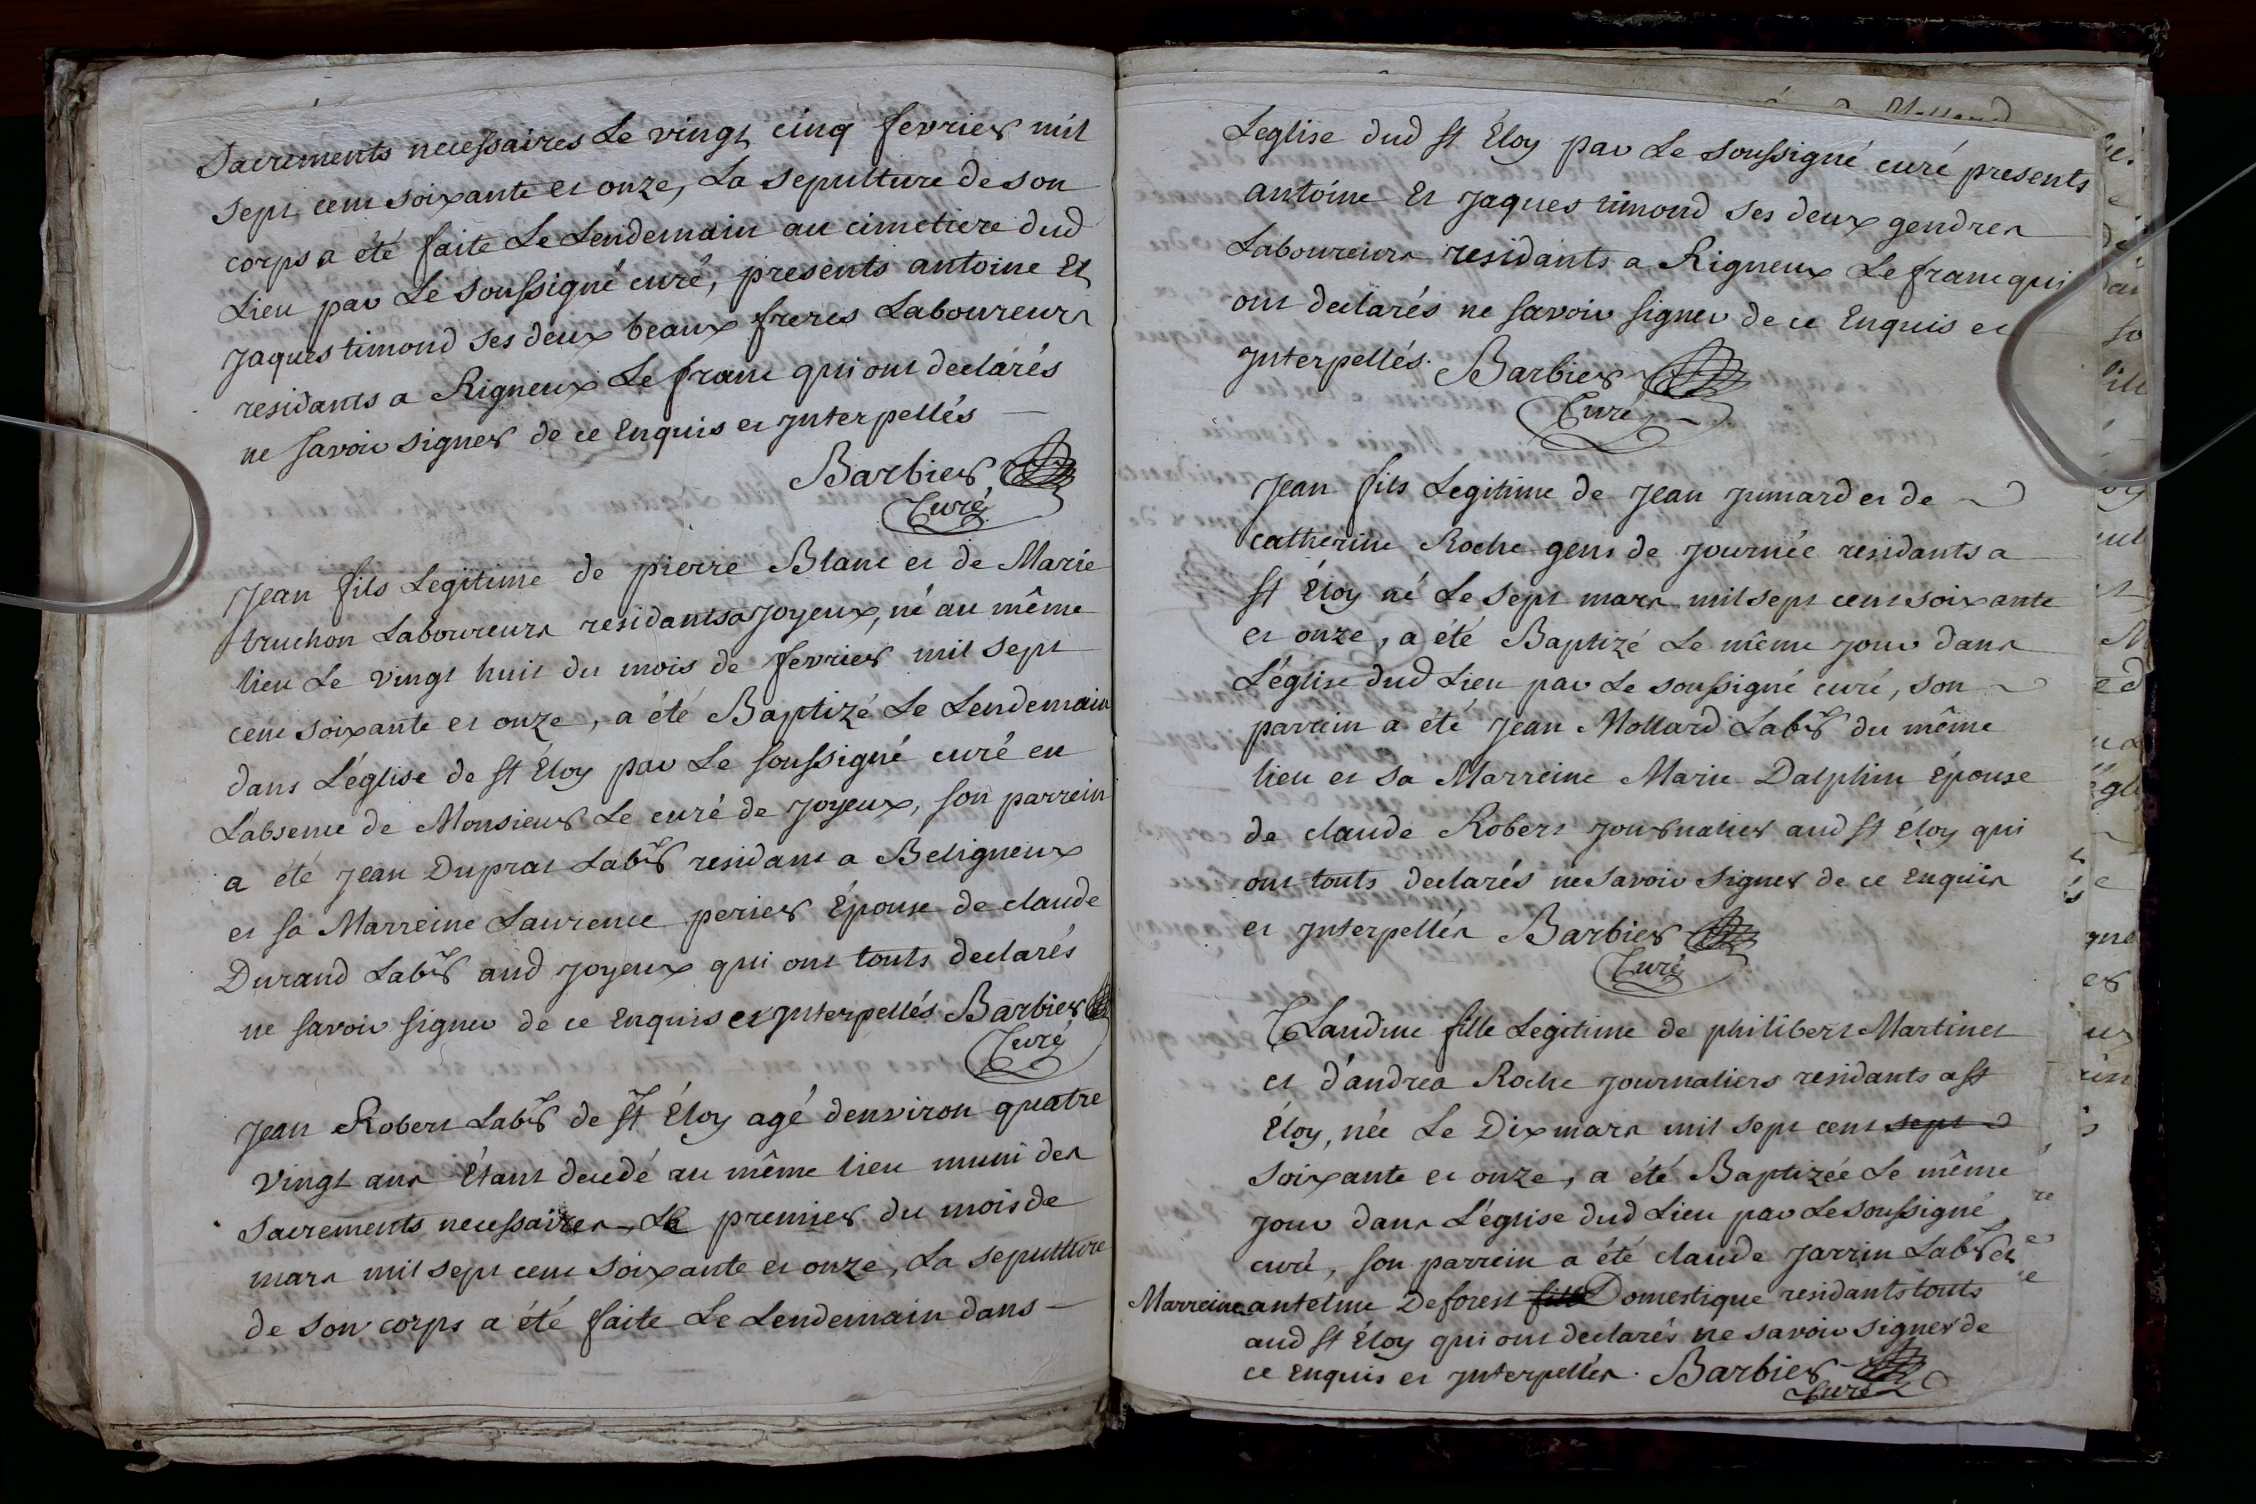 Sacrements necessaires Le vingt cinq fevrier mil
sept cent soixante et onze, La sepulture de son
corps a été faite Le Lendemain au cimetiere dud
Lieu par Le soussigné curé, presents antoine Et
jaques timond ses deux beaux freres Laboureurs
residants a Rigneux Le franc qui ont declarés
ne savoir signer de ce Enquis et jnterpellés
Barbier
Curé
Jean fils Legitime de pierre Blanc et de Marie
truchon Laboureurs residants a joyeux, né au même
lieu Le vingt huit du mois de fevrier mil sept
cent soixante et onze, a été Baptizé Le Lendemain
dans L'église de st Éloy par Le soussigné curé en
L'absence de Monsieur Le curé de joyeux, son parrein
a été jean Duprat Labr residant a Beligneux
et sa Marreine Laurence perier Épouse de claude
Durand Labr aud joyeux qui ont touts declarés
ne savoir signer de ce Enquis et jnterpellés Barbier
Curé
Jean Robert Labr de st Éloy agé d'environ quatre
vingt ans Étant decedé au même lieu muni des
Sacrements necessaires Le premier du mois de
mars mil sept cent soixante et onze, La sepulture
de son corps a été faite Le Lendemain dans
L'eglise dud st Éloy par Le soussigné curé presents
antoine Et jaques timond ses deux gendres
Laboureurs residants a Rigneux Le franc qui
ont declarés ne savoir signer de ce Enquis et
jnterpellés. Barbier
Curé
Jean fils Legitime de jean jumard et de
catherine Roche gens de journée residants a
st Éloy né Le sept mars mil sept cent soixante
et onze, a été Baptizé Le même jour dans
L'église dud Lieu par Le soussigné curé, son
parrein a été jean Mollard Labr du même
lieu et sa Marreine Marie Dalphin Épouse
de claude Robert journalier aud st Éloy qui
ont touts declarés ne savoir signer de ce Enquis
et jnterpellés Barbier
Curé
Claudine fille Legitime de philibert Martinet
et d'andrea Roche journaliers residants a st
Éloy, née Le Dix mars mil sept cent sept
soixante et onze, a été Baptizée Le même
jour dans L'église dud Lieu par Le soussigné
curé, son parrein a été claude jarrin Labr et
Marreine antelme Deforest fille Domestique residants touts
aud st Éloy qui ont declarés ne savoir signer de
ce Enquis et jnterpellés. Barbier
Curé